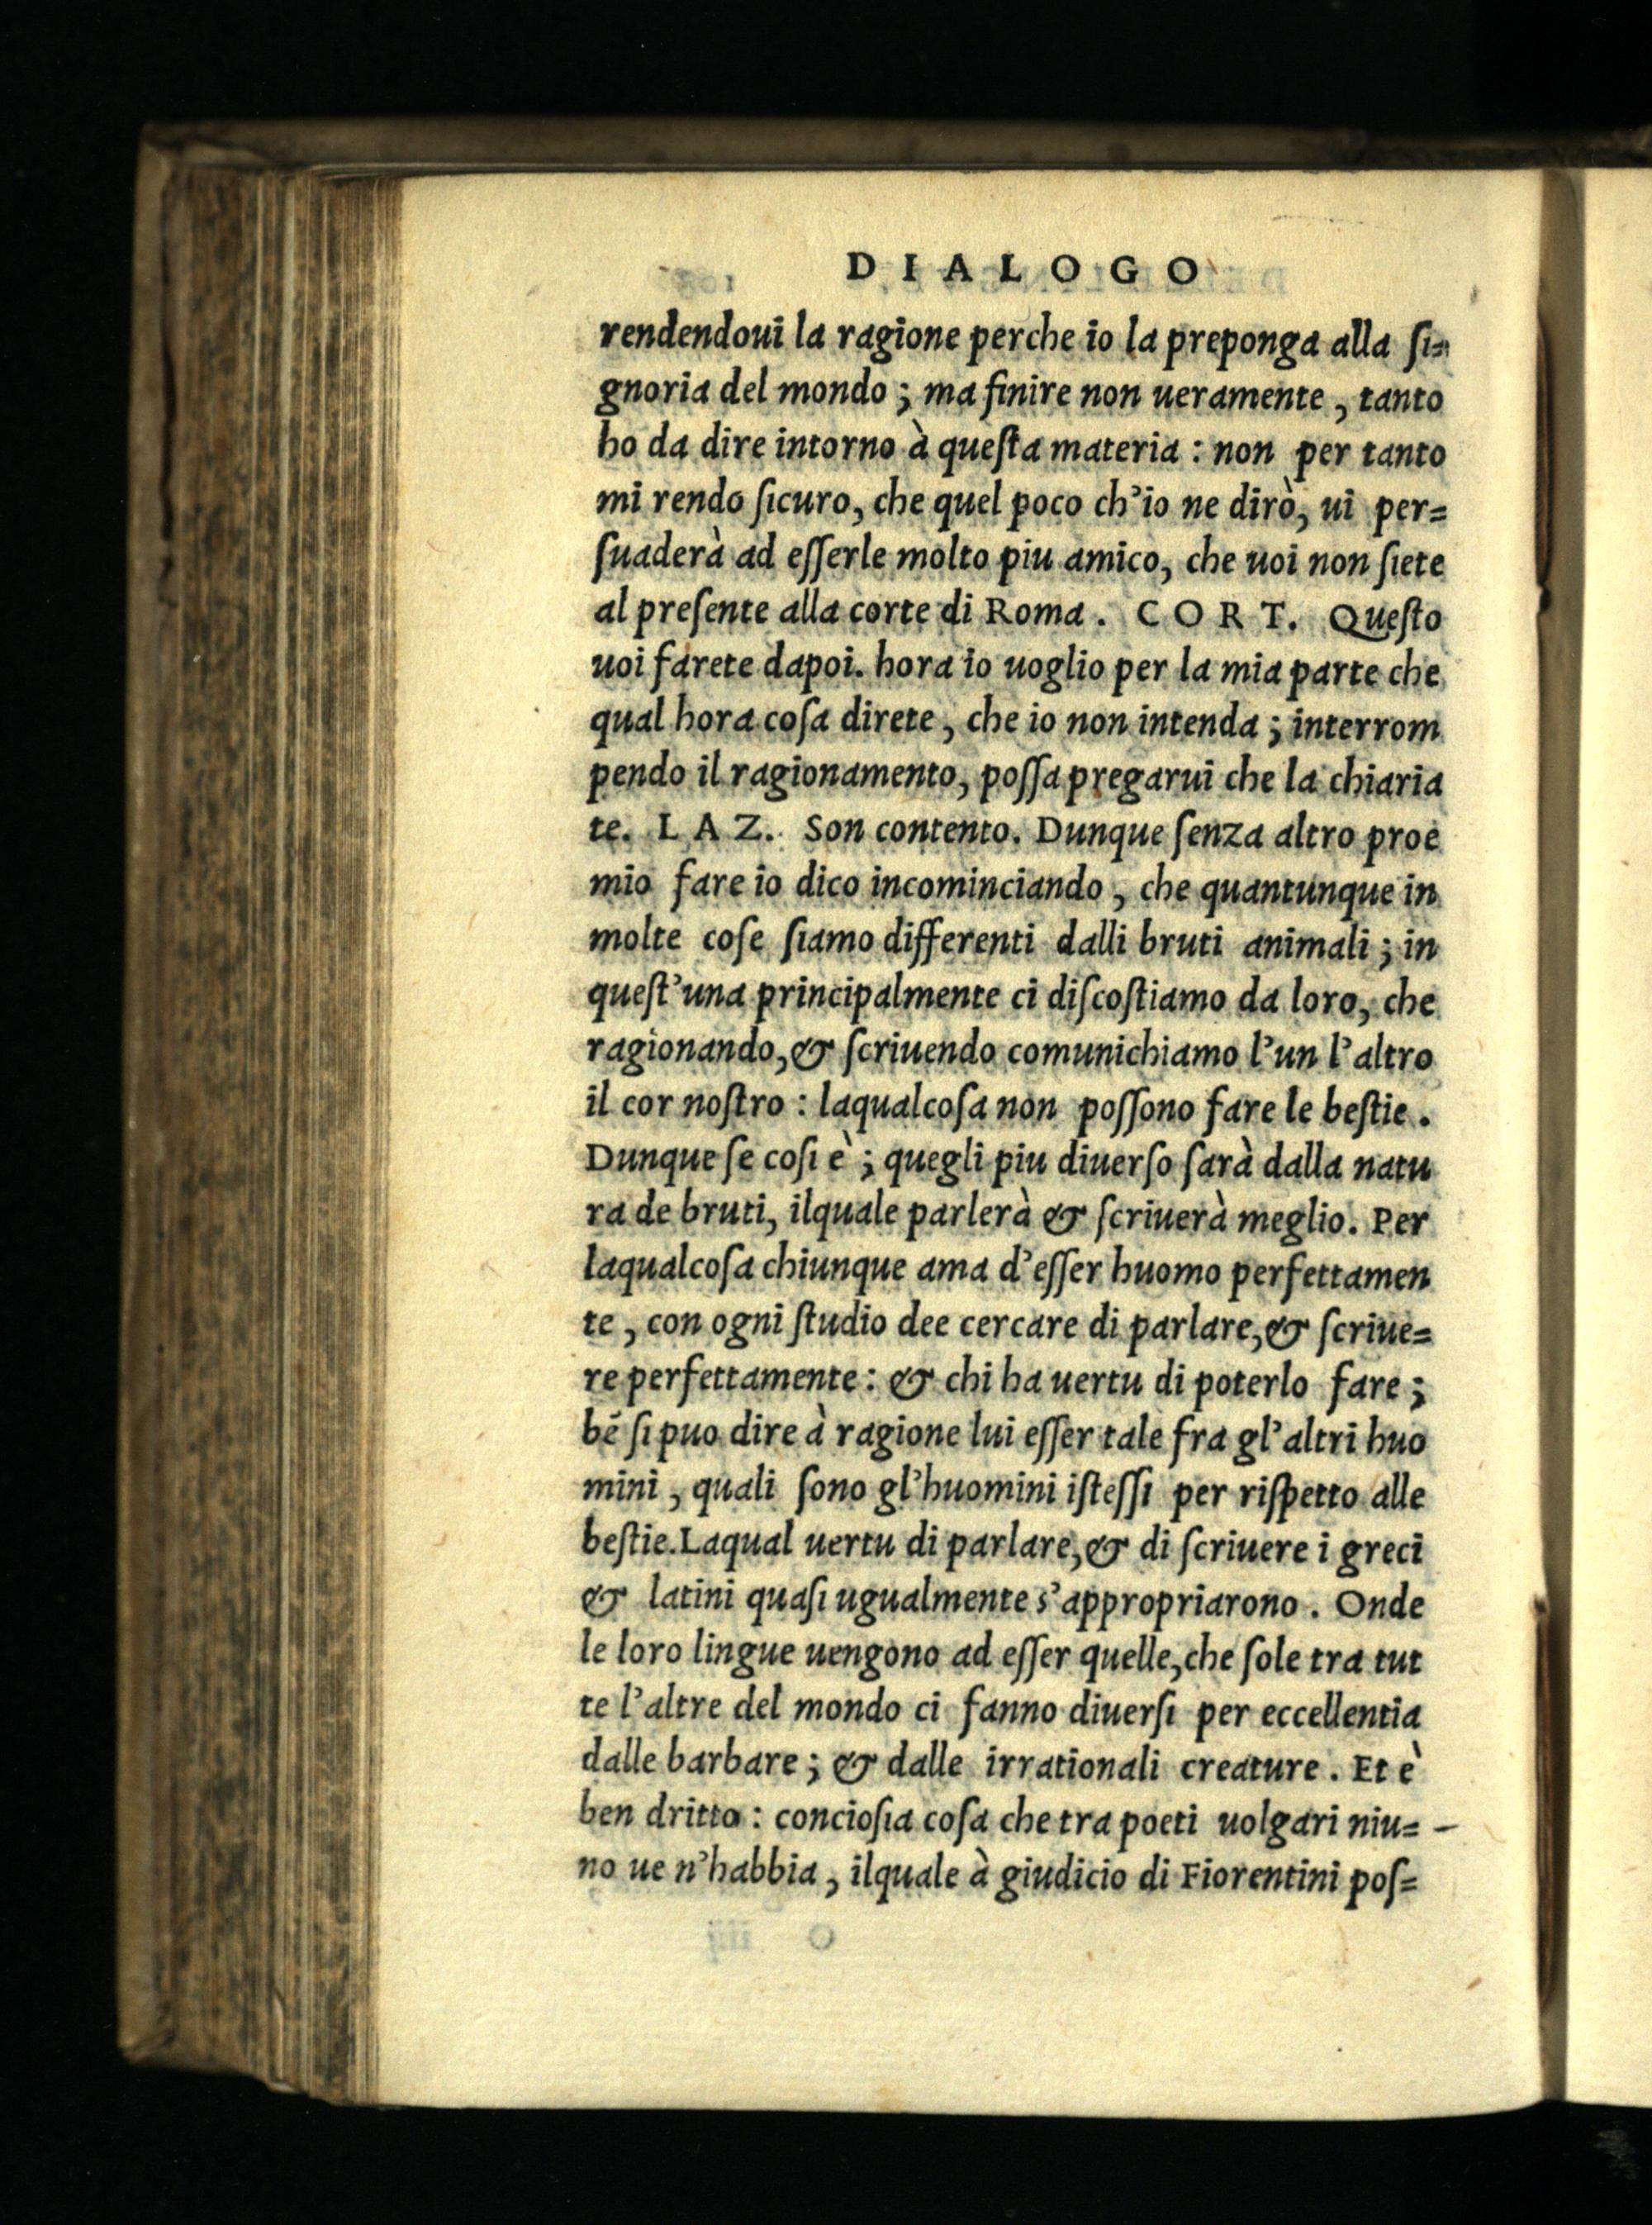 DIALOGO
rendendoui la ragione perche io la preponga alla ſi=
gnoria del mondo ; ma finire non ueramente , tanto
ho da dire intorno à queſta materia : non per tanto
mi rendo ſicuro, che quel poco ch'io ne dirò, ui per=
ſuaderà ad eſſerle molto piu amico, che uoi non ſiete
al preſente alla corte di Roma . CORT. Queſto
uoi farete dapoi. hora io uoglio per la mia parte che
qual hora coſa direte , che io non intenda ; interrom
pendo il ragionamento, poſſa pregarui che la chiaria
te. LAZ. Son contento. Dunque ſenza altro proe
mio fare io dico incominciando , che quantunque in
molte coſe ſiamo differenti dalli bruti animali ; in
queſt'una principalmente ci diſcoſtiamo da loro, che
ragionando, & ſcriuendo comunichiamo l'un l'altro
il cor noſtro : laqualcoſa non poſſono fare le beſtie .
Dunque ſe coſi è ; quegli piu diuerſo ſarà dalla natu
ra de bruti, ilquale parlerà & ſcriuerà meglio. Per
laqualcoſa chiunque ama d'eſſer huomo perfettamen
te , con ogni ſtudio dee cercare di parlare, & ſcriue=
re perfettamente : & chi ha uertu di poterlo fare ;
bē ſi puo dire à ragione lui eſſer tale fra gl'altri huo
mini , quali ſono gl'huomini iſteſſi per riſpetto alle
beſtie. Laqual uertu di parlare, & di ſcriuere i greci
& latini quaſi ugualmente s'appropriarono . Onde
le loro lingue uengono ad eſſer quelle, che ſole tra tut
te l'altre del mondo ci fanno diuerſi per eccellentia
dalle barbare ; & dalle irrationali creature . Et è
ben dritto : concioſia coſa che tra poeti uolgari niu=
no ue n'habbia , ilquale à giudicio di Fiorentini poſ=